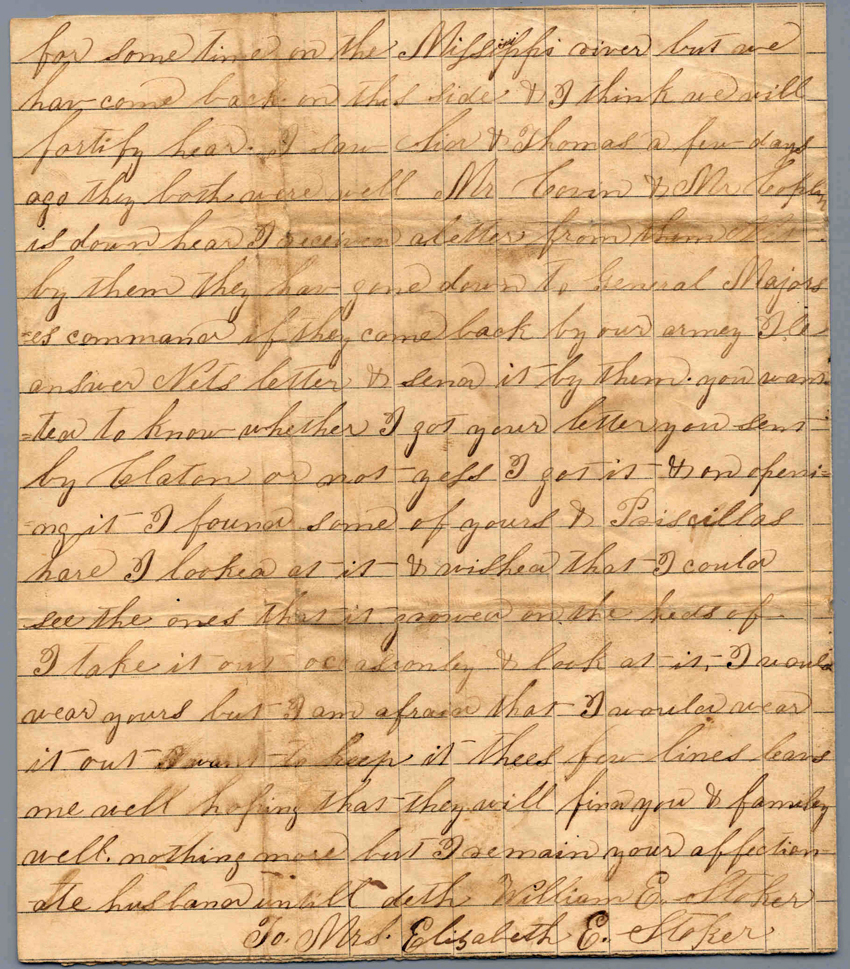 for some time on the Missisippi river but we
hav come back on this side & I think we will
fortify hear. I saw & Thomas a few days
ago they both were well Mr Covin & Mr Copley
is down hear I receiven a letter from them
by them they hav gone down to General Majors
=es command if they come back by our armey I le
answer Nets letter & send it by them. you wan
=ted to know whether I got your letter you sent
by Claton or not yess I got it & on openi=
=ng it I found some of yours & Priscillas
hare I looked at it & wished that I could
see the ones that it growed on the heds of
I take it out occasionly & look at it, I would
wear yours but I am afraid that I would wear
it out I want to keep it thees few lines leavs
me well hoping that they will find you & family
well. nothing more but I remain your affection=
ate husband untill deth William E. Stoker
To. Mrs. Elizabeth E. Stoker